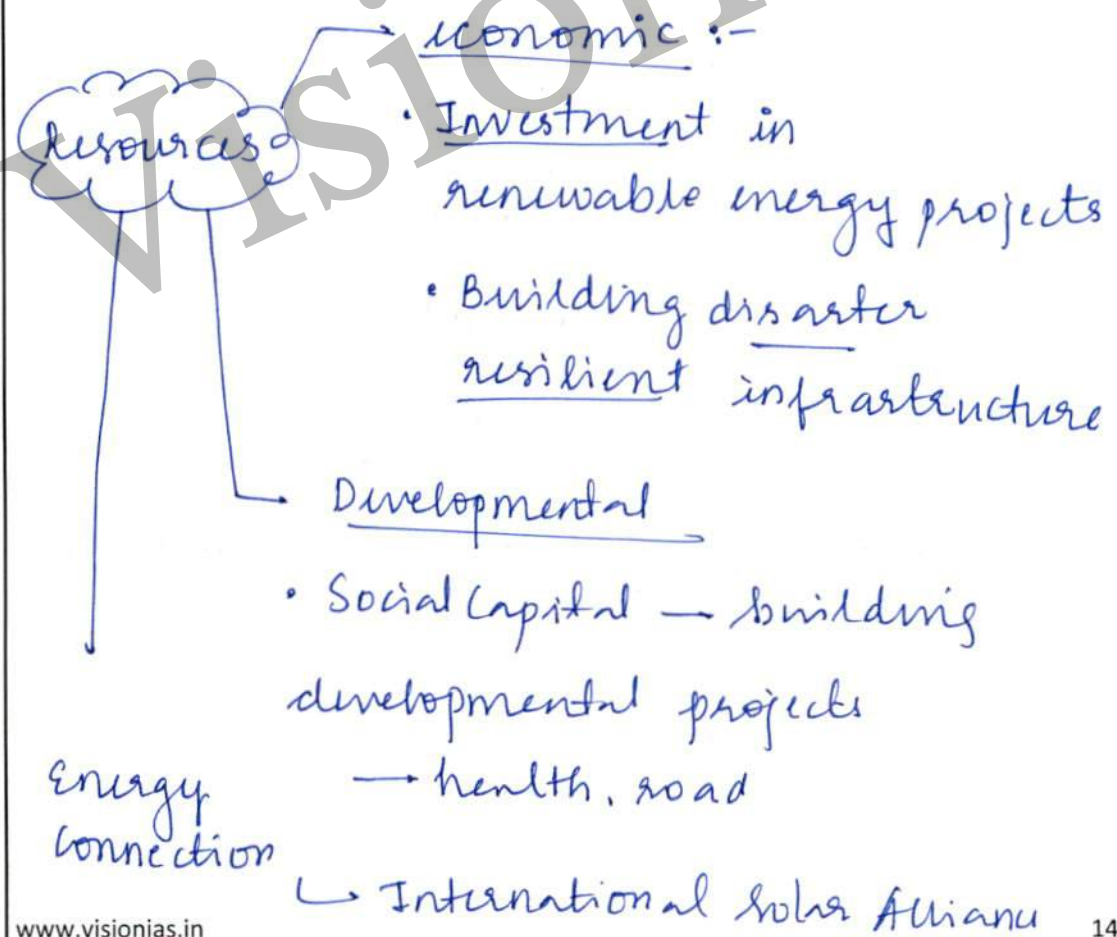 Resources
economic :-
• Investment in
renewable energy projects
• Building disaster
resilient infrastructure
Developmental
• Social Capital — building
developmental projects
→ health, road
Energy
Connection
↳ International Solar Alliance
www.visionias.in
14
Vision